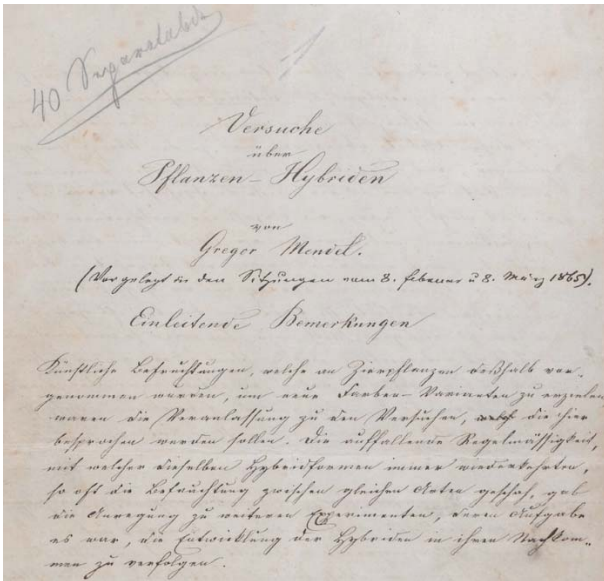 40 Separatabdr
Versuche
über
Pflanzen-Hybriden
von
Gregor Mendel.
(Vorgelegt in den Sitzungen vom 8. Februar u 8. März 1865).
Einleitende Bemerkungen
Künstliche Befruchtungen, welche an Zierpflanzen deßhalb vor-
genommen wurden, um neue Farben-Varianten zu erzielen
waren die Veranlassung zu den Versuchen, die hier
besprochen werden sollen. Die auffallende Regelmässigkeit,
mit welcher dieselben Hybridformen immer wiederkehrten,
so oft die Befruchtung zwischen gleichen Arten geschah, gab
die Anregung zu weiteren Experimenten, deren Aufgabe
es war, die Entwicklung der Hybriden in ihren Nachkom-
men zu verfolgen.